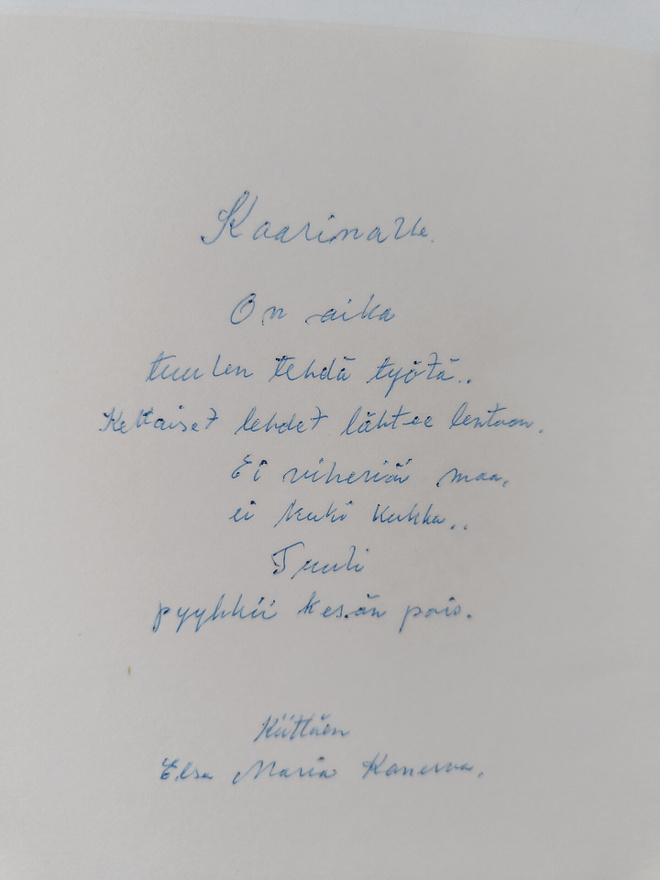 Kaarinalle.
On aika
tuulen tehdä työtä..
Keltaiset lehdet lähtee lentoon.
Ei viheriöi maa,
ei kuki kukka..
Tuuli
pyyhkii kesän pois.
Kiittäen
Elsa Maria Kanerva.